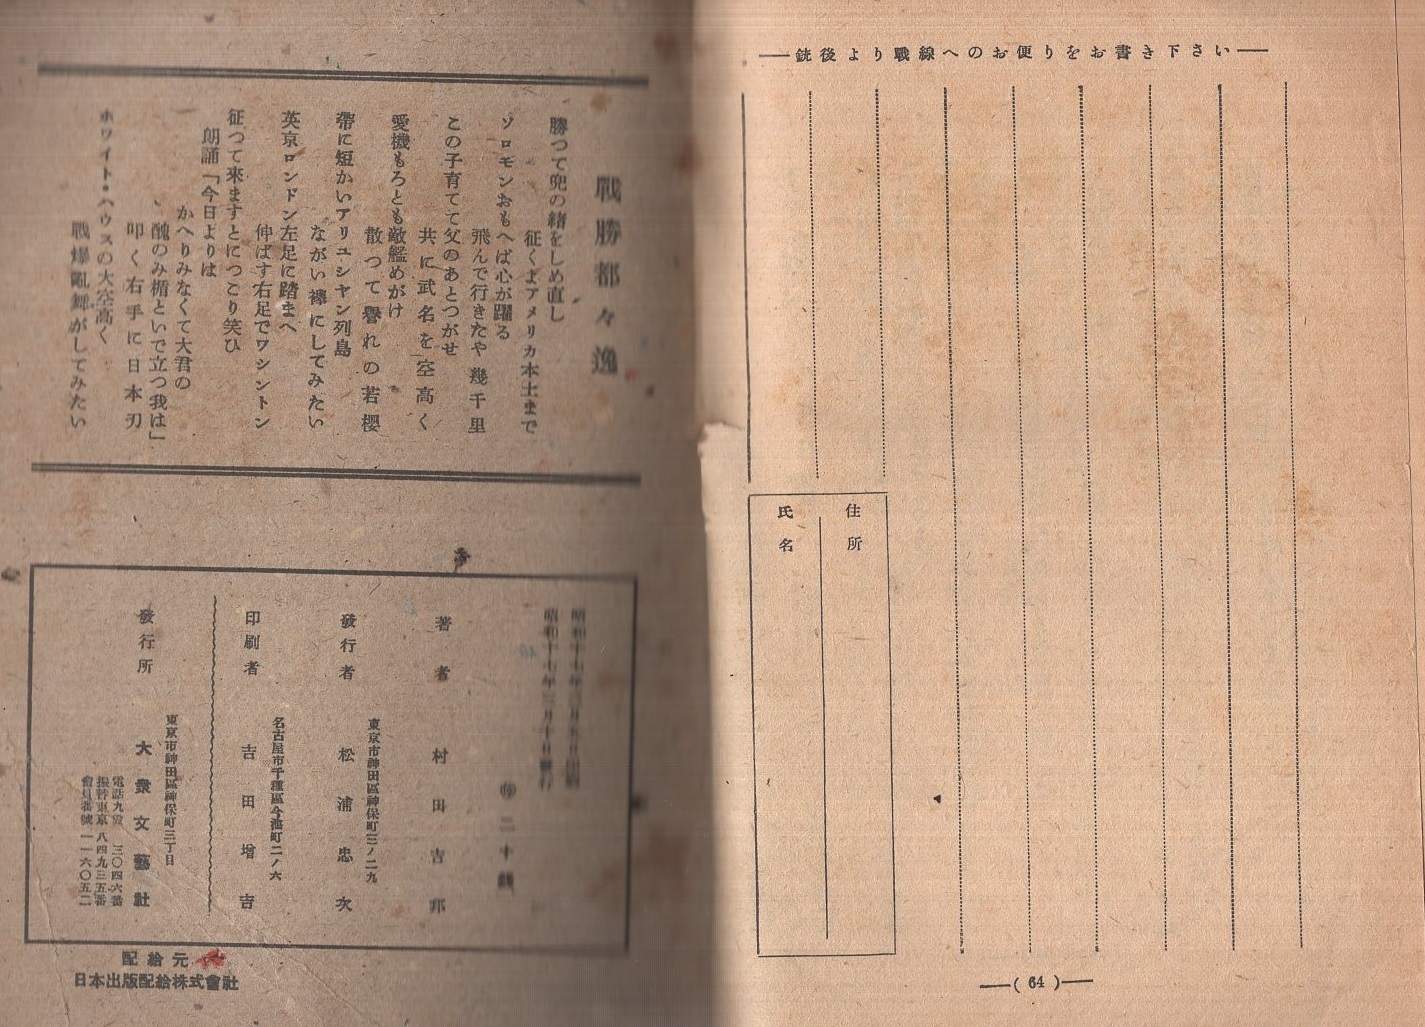 銃後より戰線へのお便りをお書き下さい
住所
氏名
( 64 )
戰勝都々逸
勝つて兜の緒をしめ直し
征くよアメリカ本土まで
ソロモンおもへば心が躍る
飛んで行きたや幾千里
この子育てて父のあとつがせ
共に武名を空高く
愛機もろとも敵艦めがけ
散つて譽れの若櫻
帶に短かいアリユシヤン列島
ながい襷にしてみたい
英京ロンドン左足に踏まへ
伸ばす右足でワシントン
征つて來ますとにつこり笑ひ
朗誦「今日よりは
かへりみなくて大君の
醜のみ楯といで立つ我は」
叩く右手に日本刃
ホワイト・ハウスの大空高く
戰爆亂舞がしてみたい
昭和十七年三月五日印刷
昭和十七年三月十日發行
二十錢
著者 村田吉邦
東京市神田區神保町三ノ二九
發行者 松浦忠次
名古屋市千種區今池町二ノ六
印刷者 吉田増吉
東京市神田區神保町三丁目
發行所 大衆文藝社
電話九段 三〇四六番
振替東京 八四九三五番
會員番號 一一六〇五二
配給元
日本出版配給株式會社